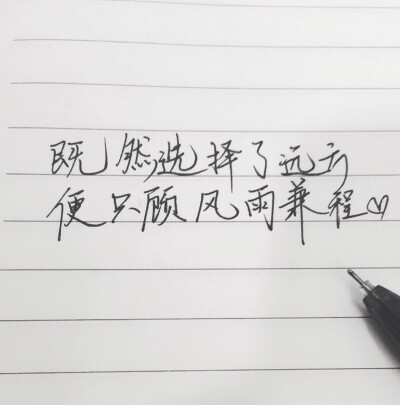 既然选择了远方
便只顾风雨兼程♡